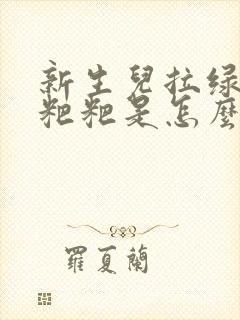 新生兒拉绿
粑粑是怎麼
羅夏蘭